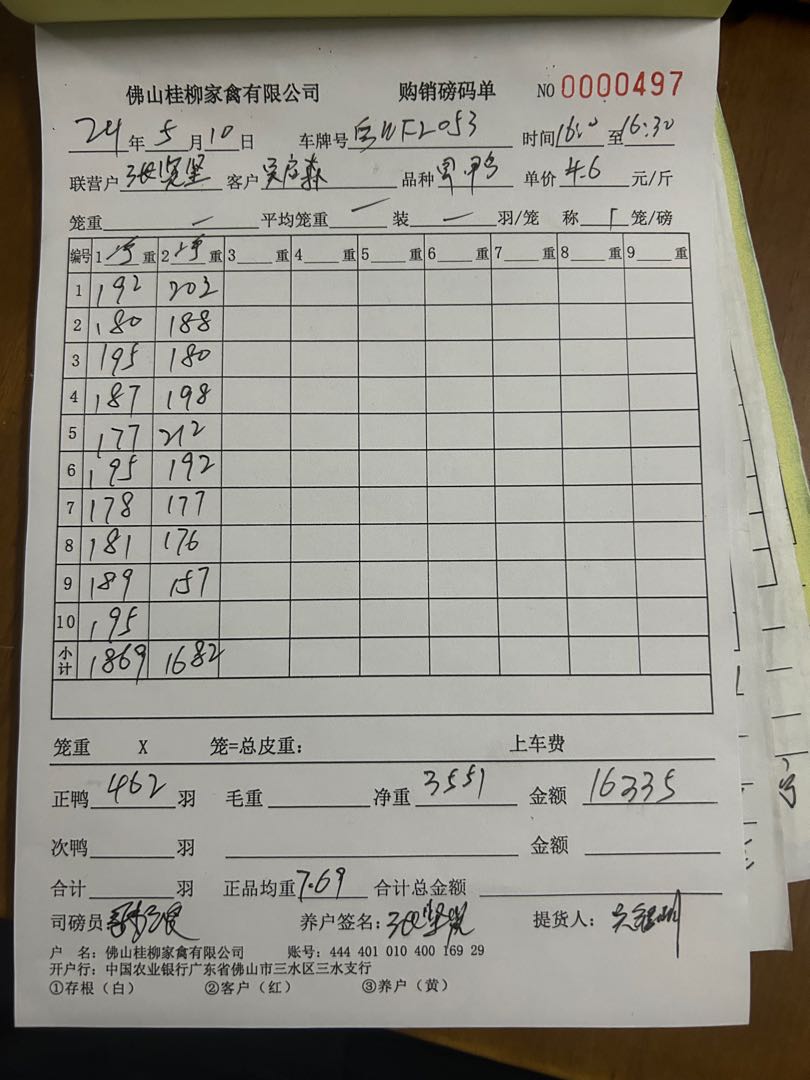 佛山桂柳家禽有限公司 购销磅码单 NO 0000497
24年5月10日 车牌号 WF2053 时间16: 至16:30
联营户 客户 品种 鸭 单价4.6元/斤
笼重 一 平均笼重 一 装 一 羽/笼 称 笼/磅
编号 1净重 2净重 3重 4重 5重 6重 7重 8重 9重
1 192 203
2 180 188
3 195 180
4 187 198
5 177 212
6 195 192
7 178 177
8 181 176
9 189 157
10 195
小计 1869 1682
笼重 X 笼=总皮重: 上车费
正鸭462羽 毛重 净重3551 金额16335
次鸭 羽 金额
合计 羽 正品均重7.69 合计总金额
司磅员 养户签名: 提货人:
户 名: 佛山桂柳家禽有限公司 账号: 444 401 010 400 169 29
开户行: 中国农业银行广东省佛山市三水区三水支行
①存根(白) ②客户(红) ③养户(黄)